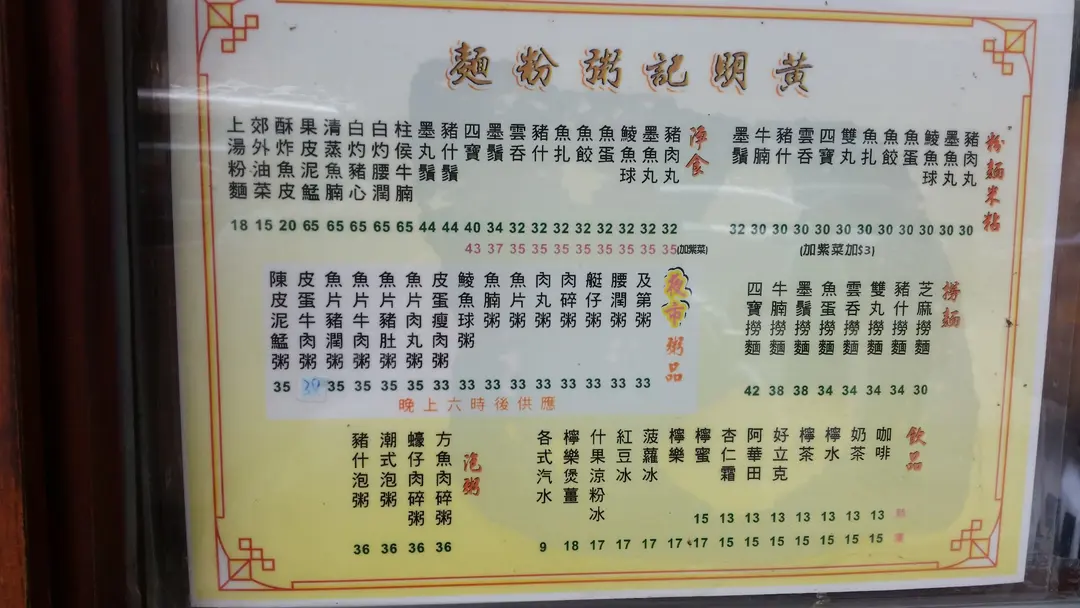 黃明記粥粉麵
粉麵米粘
豬肉丸
墨魚丸
鯪魚球
魚蛋
魚餃
魚扎
雙丸
四寶
雲吞
豬什
牛腩
墨鬚
32 30 30 30 30 30 30 30 30 30 30 30
(加紫菜加$3)
淨食
豬肉丸
墨魚丸
鯪魚球
魚蛋
魚餃
魚扎
豬什
雲吞
墨鬚
四寶
豬什鬚
墨丸鬚
柱侯牛腩
白灼腰潤
白灼豬心
清蒸魚腩
果皮泥鯭
酥炸魚皮
郊外油菜
上湯粉麵
18 15 20 65 65 65 65 65 44 44 40 34 32 32 32 32 32 32 32 32
43 37 35 35 35 35 35 35 35 35(加紫菜)
撈麵
芝麻撈麵
豬什撈麵
雙丸撈麵
雲吞撈麵
魚蛋撈麵
墨鬚撈麵
牛腩撈麵
四寶撈麵
42 38 38 34 34 34 34 30
夜市粥品
及第粥
腰潤粥
艇仔粥
肉碎粥
肉丸粥
魚片粥
魚腩粥
鯪魚球粥
皮蛋瘦肉粥
魚片肉丸粥
魚片豬肚粥
魚片牛肉粥
魚片豬潤粥
皮蛋牛肉粥
陳皮泥鯭粥
35 38 35 35 35 35 33 33 33 33 33 33 33 33 33
晚上六時後供應
飲品
咖啡
奶茶
檸水
檸茶
好立克
阿華田
杏仁霜
檸蜜
檸樂
菠蘿冰
紅豆冰
什果涼粉冰
檸樂煲薑
各式汽水
15 13 13 13 13 13 13 13 熱
9 18 17 17 17 17 17 15 15 15 15 15 15 15 凍
泡粥
方魚肉碎粥
蠔仔肉碎粥
潮式泡粥
豬什泡粥
36 36 36 36